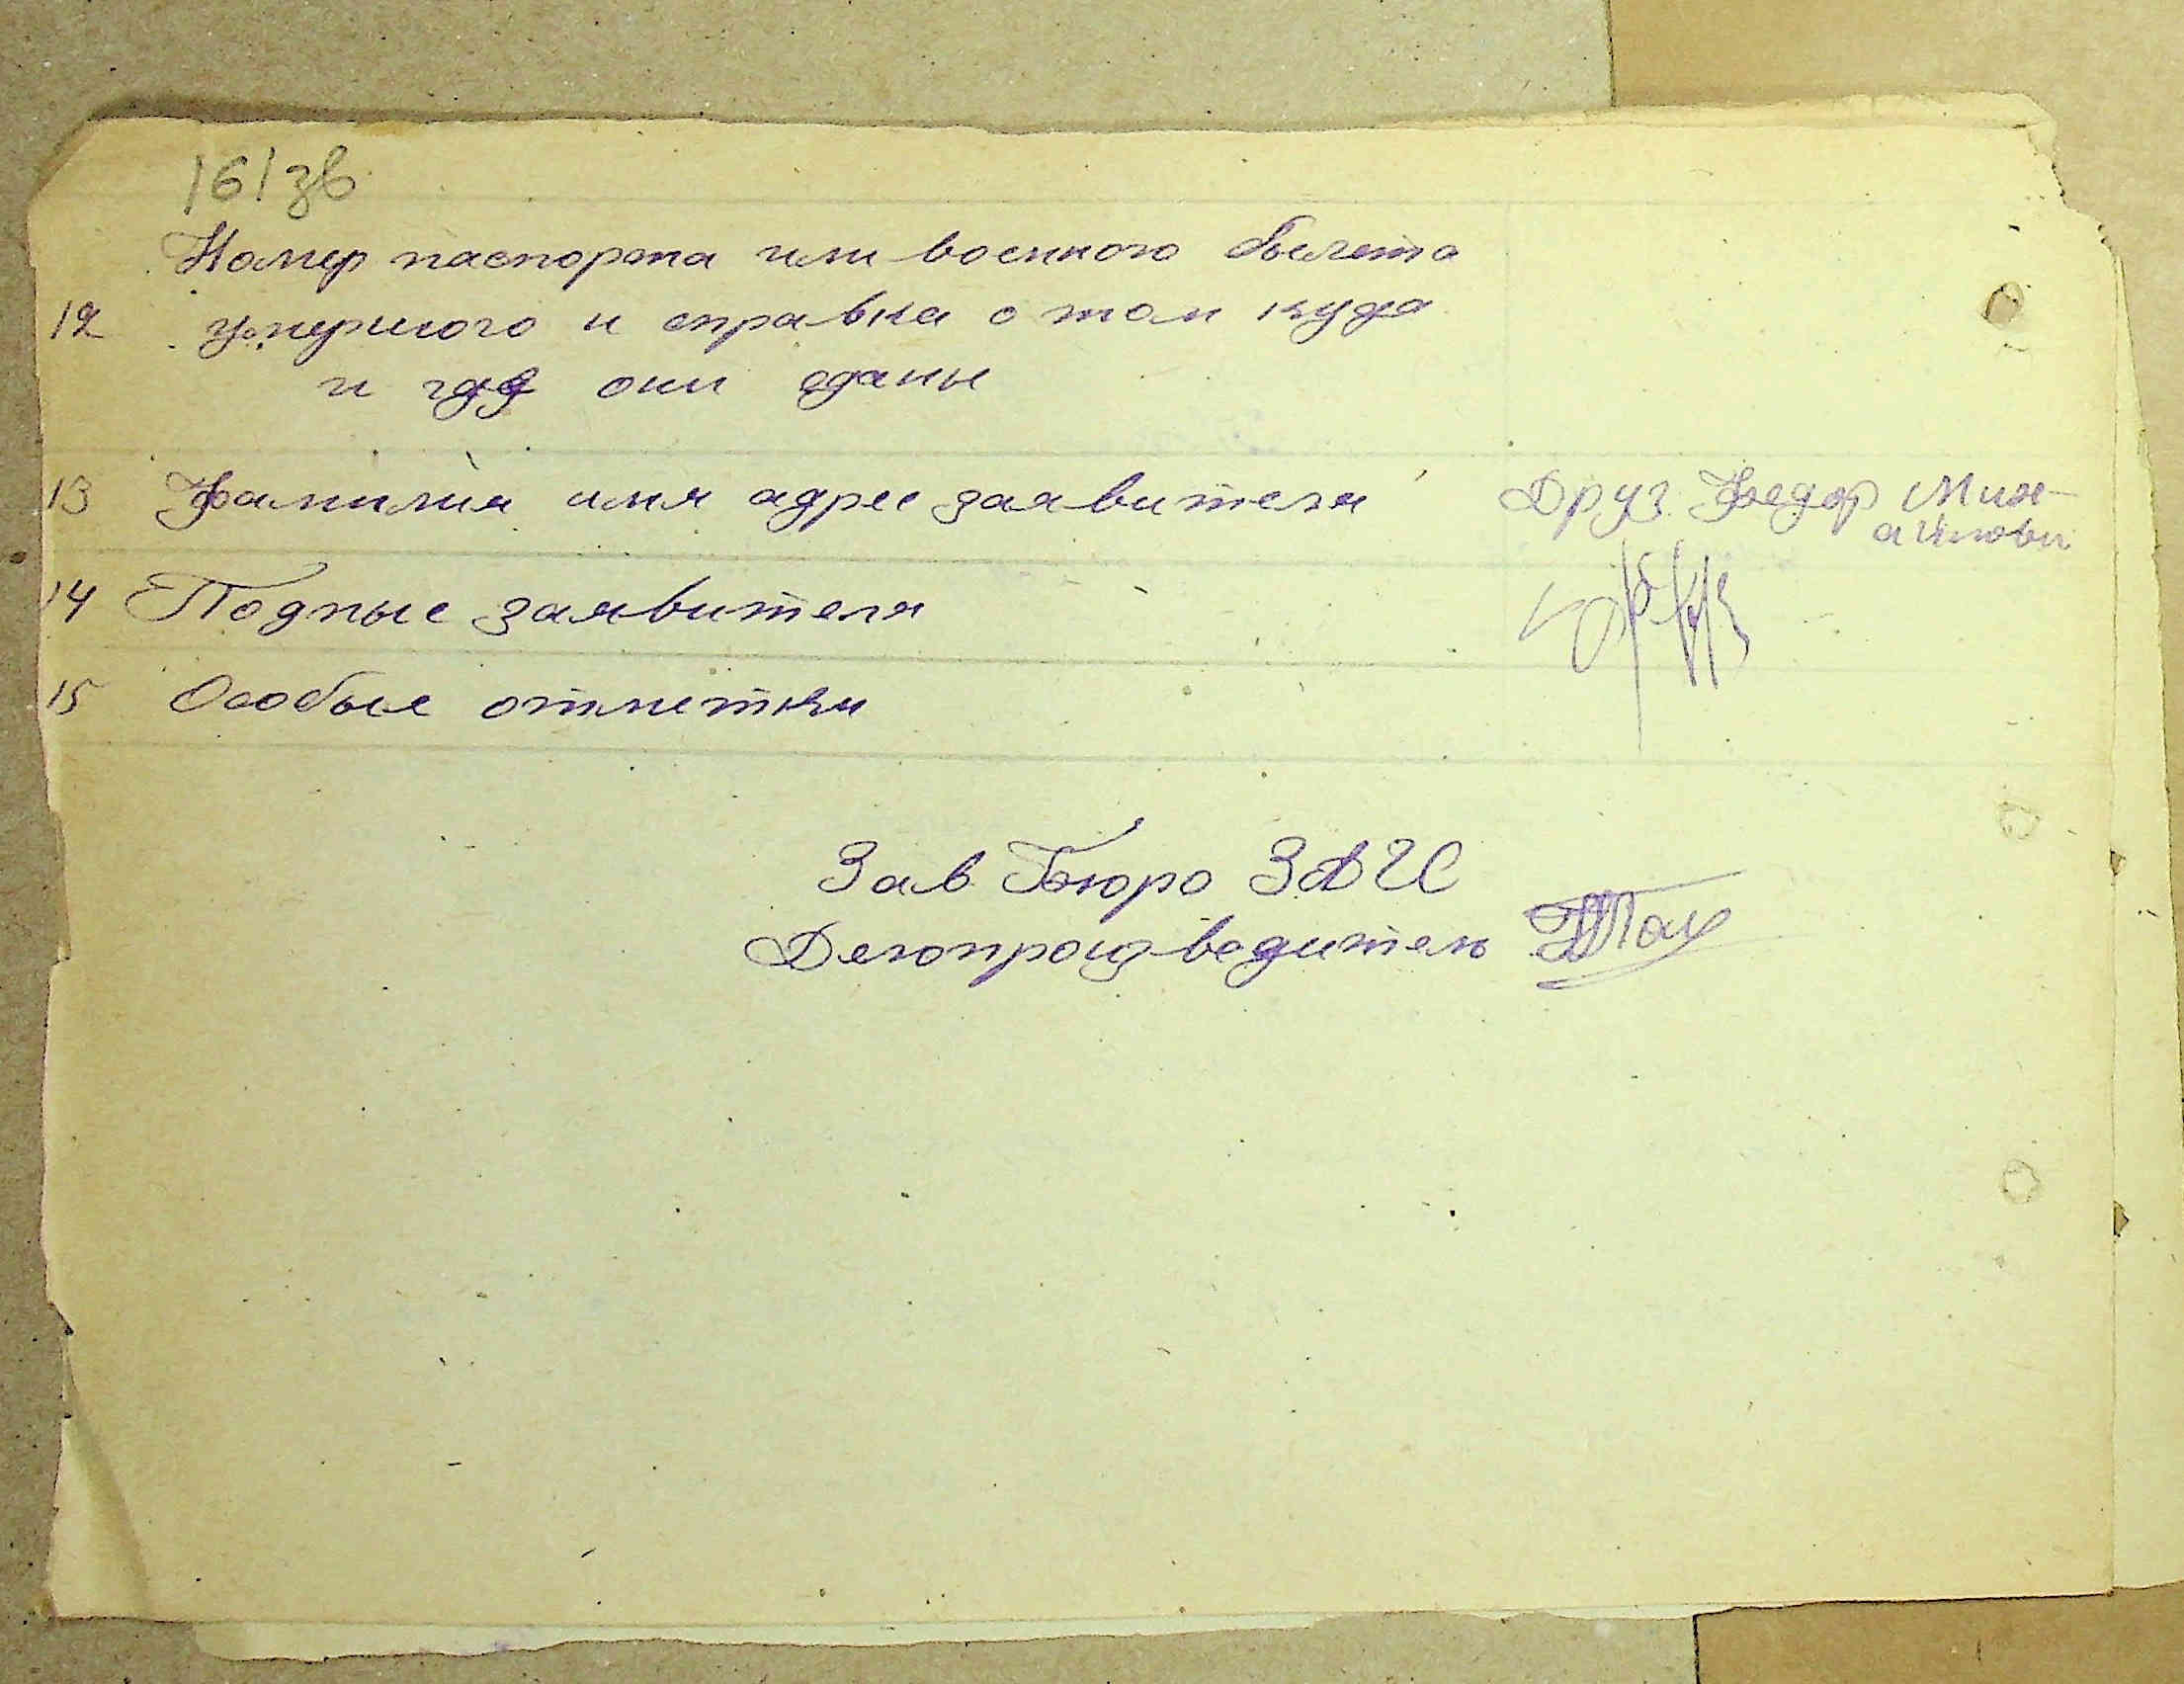 161зв
Номер паспорта или военного былета
12 умершого и справка о том куда
и где они сданы
13 Фамилия имя адрес заявителя Друз Федор Мих-
айлови
14 Подпысе заявителя
15 Особые отметки
Зав Бюро ЗАГС
Делопроизводитель